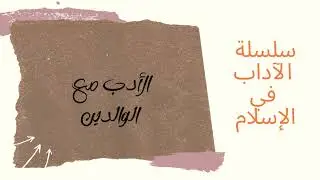 سلسلة
الآداب
في
الإسلام
الأدب مع
الوالدين